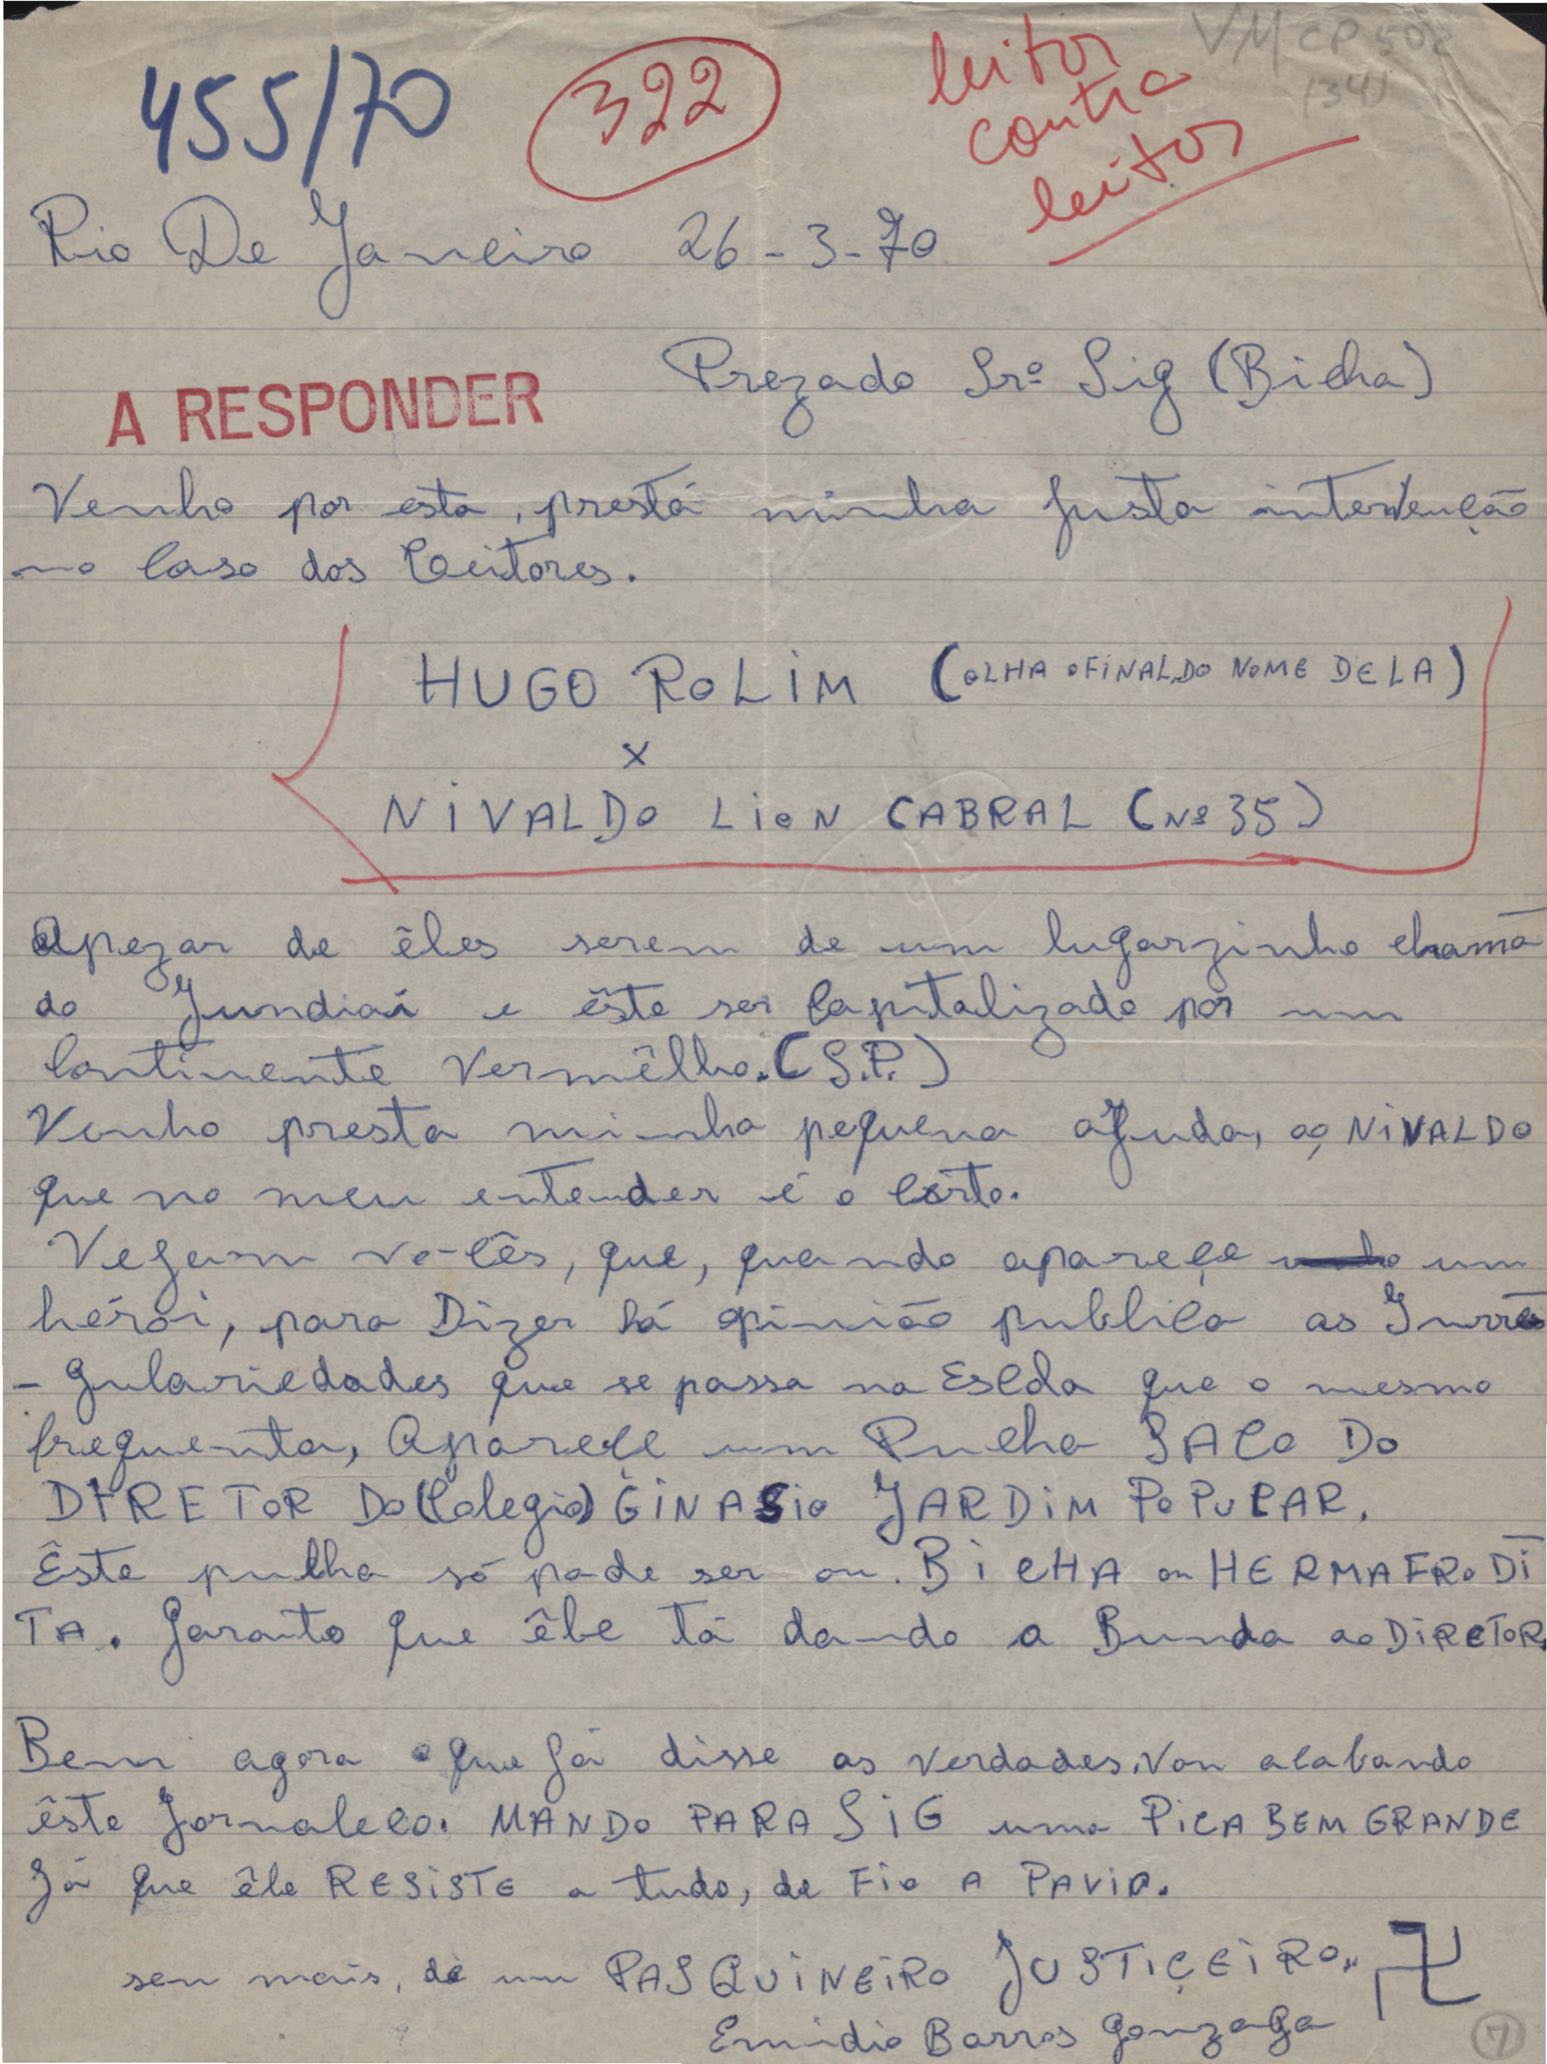 VM CP 502
(34)
455/70
322
leitor
contra
leitor
Rio De Janeiro 26-3-70
A RESPONDER
Prezado Srº Sig (Bicha)
Venho por esta, prestá minha justa intervenção
no caso dos leitores.
HUGO ROLIM (OLHA O FINAL DO NOME DELA)
x
NIVALDO LION CABRAL (Nº 35)
Apezar de êles serem de um lugarzinho chama
do Jundiai e êste ser capitalizado por um
continente vermêlho. (S.P.)
Venho presta minha pequena ajuda, ao NIVALDO
que no meu entender é o certo.
Vejam vo-cês, que, quando apareçe um
hérói, para Dizer há opinião publica as Irre
- gulariedades que se passa na Escola que o mesmo
frequenta, Aparece um Pulha SACO DO
DIRETOR DO (Colegio) GINASIO JARDIM POPULAR.
Êste pulha só pode ser ou. BICHA ou HERMAFRODI
TA. Garanto que êle tá dando a Bunda ao DIRETOR.
Bem agora que já disse as verdades, Vou acabando
êste Jornaleco. MANDO PARA SIG uma PICA BEM GRANDE
já que êle RESISTE a tudo, de Fio A PAVIO.
sem mais, de um PASQUINEIRO JUSTIÇEIRO.. 卐
Emidio Barros Gonzaga
7